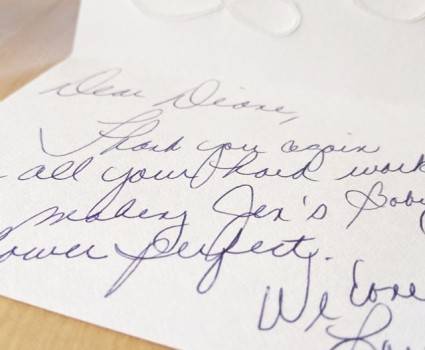 Dear Diane,
Thank you again
all your hard work
making Jen's Baby
ower perfect.
We Love